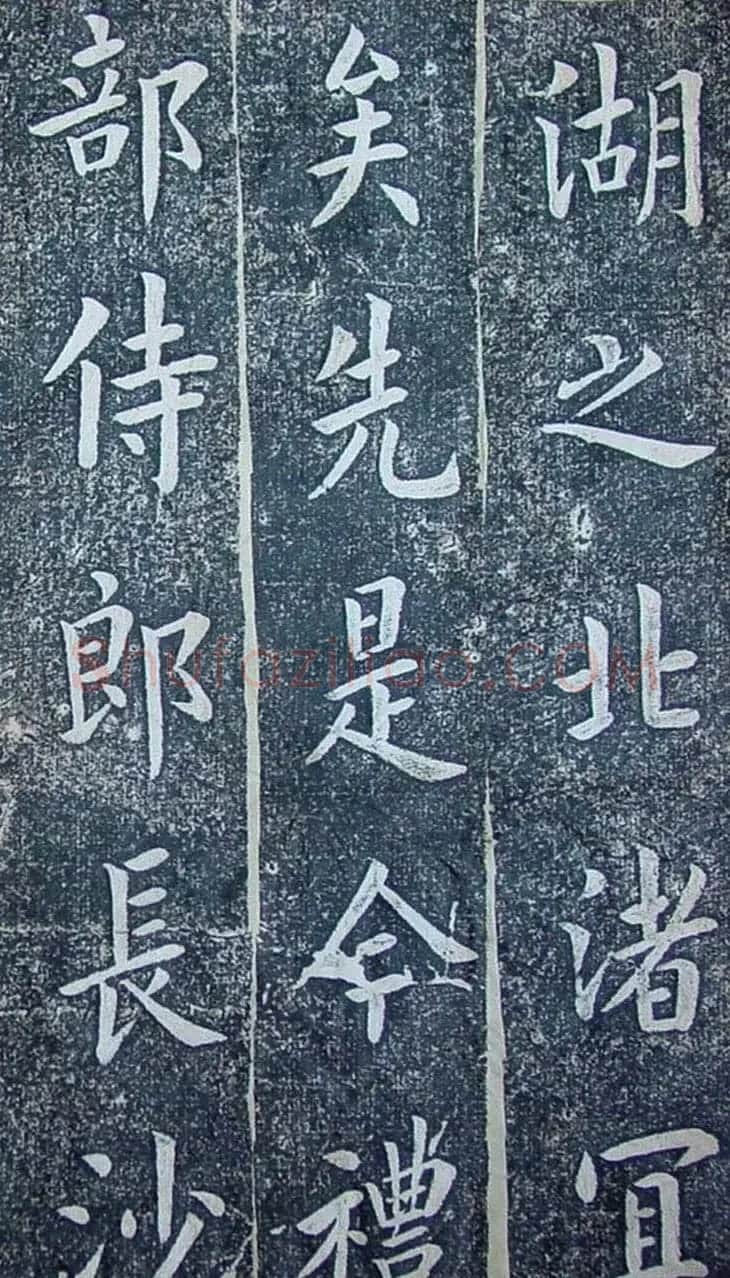 湖之北渚冝
矣先是今禮
部侍郎長沙
Shufaziliao.COM